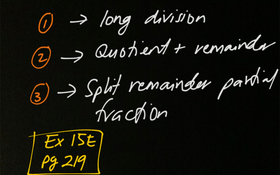 ① → long division
② → Quotient + remainder
③ → Split remainder partial
fraction
Ex 15E
pg 219